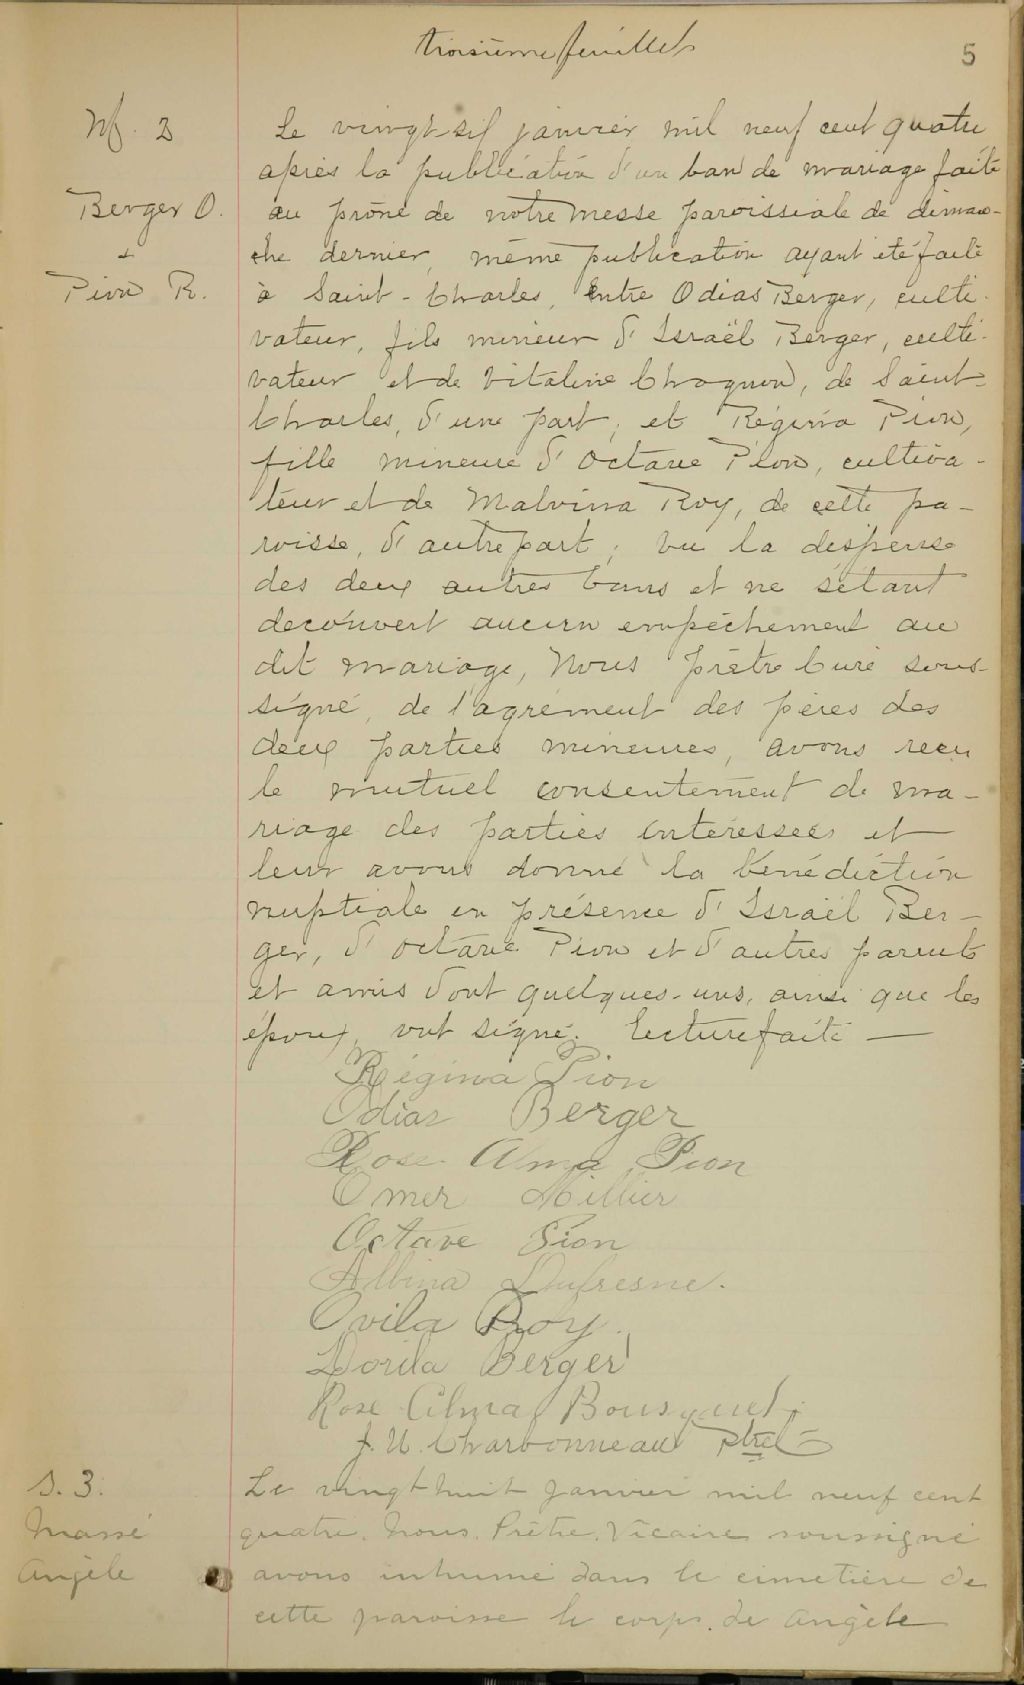 troisième feuillet
5
M. 3
Berger O.
+
Pion R.
Le vingt-six janvier mil neuf cent quatre
après la publication d'un ban de mariage faite
au prône de notre messe paroissiale de diman-
che dernier, même publication ayant été faite
à Saint-Charles, entre Odias Berger, culti-
vateur, fils mineur d'Israël Berger, culti-
vateur et de Vitaline Chagnon, de Saint-
Charles, d'une part; et Régina Pion,
fille mineure d'Octave Pion, cultiva-
teur et de Malvina Roy, de cette pa-
roisse, d'autre part; vu la dispense
des deux autres bans et ne s'étant
decouvert aucun empêchement au
dit mariage, Nous prêtre Curé sous-
signé, de l'agrément des pères des
deux parties mineures, avons reçu
le mutuel consentement de ma-
riage des parties intéressées et
leur avons donné la bénédiction
nuptiale en présence d'Israël Ber-
ger, d'octave Pion et d'autres parents
et amis dont quelques-uns, ainsi que les
époux, ont signé. Lecture faite —
Régina Pion
Odias Berger
Rose Alma Pion
Omer Millier
Octave Pion
Albina Dufresne.
Ovila Roy
Dorila Berger
Rose Alma Bousquet
J. U. Charbonneau Ptre
S. 3.
Massé
Angèle
Le vingt huit Janvier mil neuf cent
quatre. Nous. Prêtre. Vicaire soussigné
avons inhumé dans le cimetière de
cette paroisse le corps de Angèle